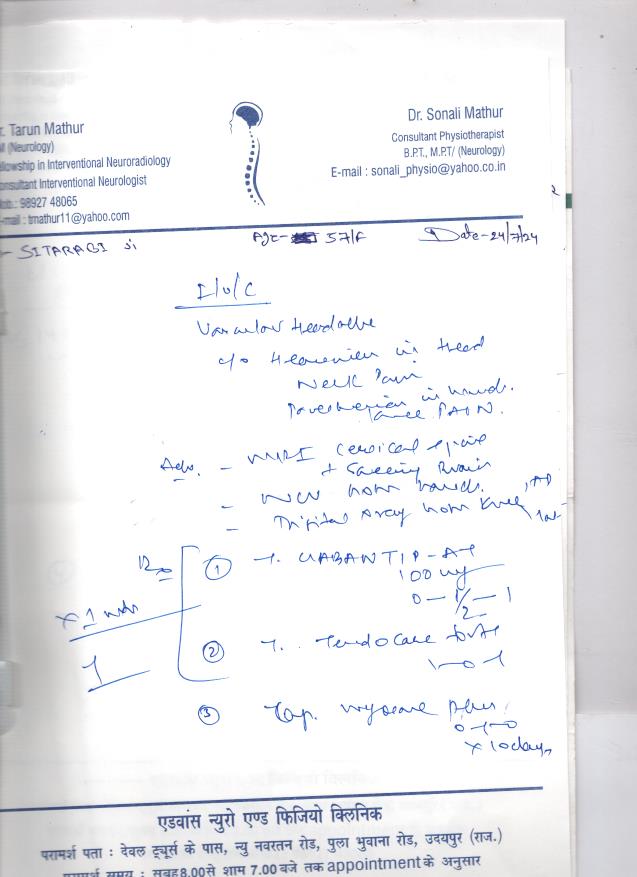 r. Tarun Mathur
M (Neurology)
ellowship in Interventional Neuroradiology
onsultant Interventional Neurologist
Mob.: 98927 48065
-mail : tmathur11@yahoo.com
Dr. Sonali Mathur
Consultant Physiotherapist
B.P.T., M.P.T/ (Neurology)
E-mail : sonali_physio@yahoo.co.in
- SITARABI Ji
Age- 57/F
Date-24/7/24
Headache
c/o in Head
Neck Pain
in hands.
PAIN.
Adv. - MRI cervical spine
+ Brain
- NCV hands.
- Digital Xray Knee, AP
Lat
Rx
① T. GABANTIP-AT
100 mg
0 - 1/2 - 1
x 1
② T. Tendocare
1-0-1
③ Cap. Myocare Plus
0-1-0
x 10 days
एडवांस न्युरो एण्ड फिजियो क्लिनिक
परामर्श पता : देवल ट्यूर्स के पास, न्यु नवरतन रोड, पुला भुवाना रोड, उदयपुर (राज.)
परामर्श समय : सुबह 8.00 से शाम 7.00 बजे तक appointment के अनुसार